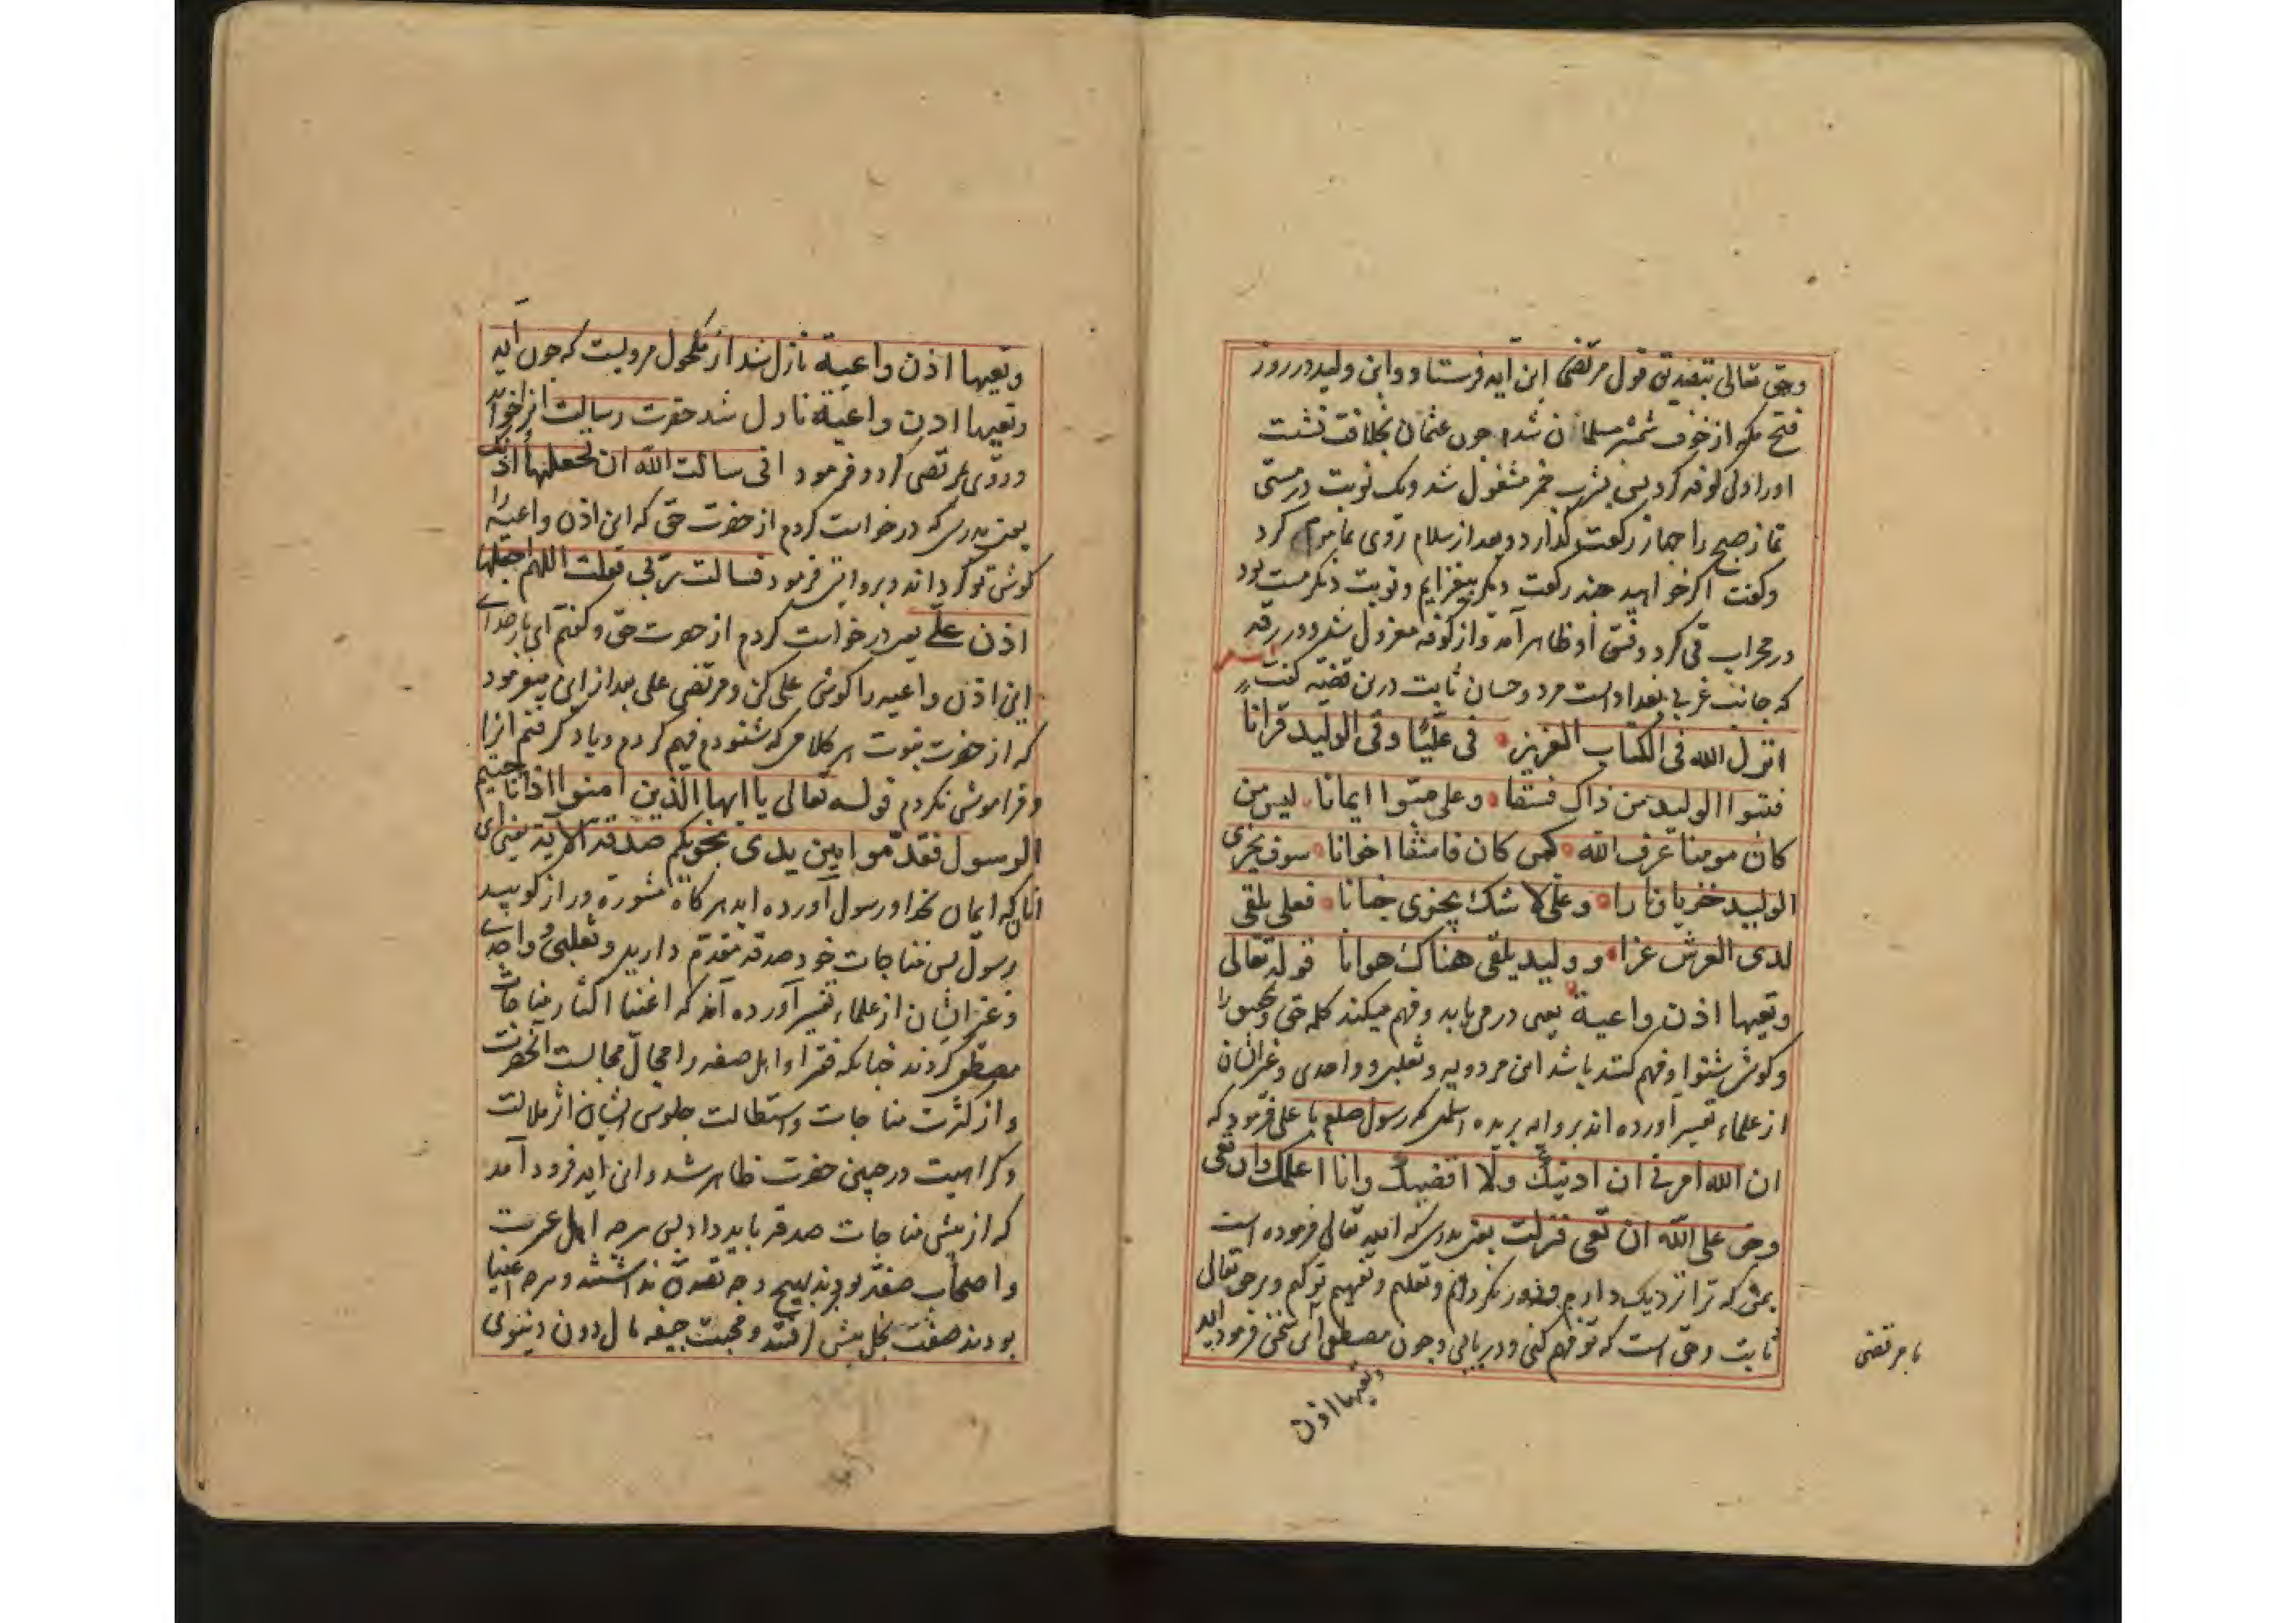 وحق تعالی بتصدیق قول مرتضی این آیه فرستاد و این ولید در روز
فتح مکه از خوف شمشیر مسلمان شد و چون عثمان بخلافت نشست
اورا ولی کوفه کرد پس بشرب خمر مشغول شد ویک نوبت در مستی
نماز صبح را چهار رکعت گذارد و بعد از سلام روی بماموم کرد
وکفت اکر خواهید چند رکعت دیکر بیفزایم ونوبت دیکر مست بود
در محراب قی کرد وفسق او ظاهر آمد واز کوفه معزول شد ودر رقه
که جانب غربی بغداد است مرد وحسان ثابت درین قضیه کفت
انزل الله فی الکتاب العزیز فی علیا وفی الولید قرانا
فتبوا الولید من ذاک فسقا وعلی مبتوا ایمانا لیس من
کان مومنا عرف الله کمن کان فاسقا اخوانا سوف یجزی
الولید خزیا ونارا وعلی لا شک یجزی جنانا فعلی یلقی
لدی العرش عزا وولید یلقی هناک هوانا قوله تعالی
وتعیها اذن واعیة یعنی در می یابد وفهم میکند کلمه حق را
وکوش شنوا وفهم کننده باشد ابن مردویه وثعلبی وواحدی وغیرایشان
از علماء تفسیر آورده اند بروایه بریده اسلمی که رسول صلعم با علی فرمود که
ان الله امرنی ان ادنیک ولا اقصیک وانا اعلمک وان تعی
وحق علی الله ان تعی فنزلت یعنی بدرستی که ایزد تعالی فرموده است
بمن که ترا نزدیک دارم ودور نکردانم وتعلیم وتفهیم تو کنم وبرحق تعالی
ثابت وحق است که تو فهم کنی ودریابی وچون مصطفی این سخن فرمود آیه
با مرتضی
وتعیها اذن
وتعیها اذن واعیة نازل شد از مکحول مرویست که چون آیه
وتعیها اذن واعیة نازل شد حضرت رسالت آنرا خواند
وروی بمرتضی کرد وفرمود انی سالت الله ان تجعلها اذنک
یعنی بدرستی که درخواست کردم از حضرت حق که این اذن واعیه را
کوش تو کرداند وبروایتی فرمود فسالت ربی فقلت اللهم اجعلها
اذن علی یعنی درخواست کردم از حضرت حق وکفتم ای بار خدای
این اذن واعیه را کوش علی کن ومرتضی علی بعد از این میفرمود
که از حضرت نبوت هر کلامی که شنودم فهم کردم ویاد کرفتم آنرا
وفراموش نکردم قوله تعالی یا ایها الذین امنوا اذا ناجیتم
الرسول فقدموا بین یدی نجویکم صدقة الایة یعنی ای
آنان که ایمان بخدا ورسول آورده اید هرکاه مشورة وراز کویید
برسول پس مناجات خود صدقه مقدم دارید وثعلبی وواحدی
وغیرایشان از علماء تفسیر آورده اند که اغنیا اکثار مناجات
مصطفی کردند چنانکه فقرا واهل صفه را مجال مجالست آنحضرت
واز کثرت مناجات واستطالت جلوس ایشان اثر ملالت
وکراهیت در جبین حضرت ظاهر شد واین آیه فرود آمد
که از پیش مناجات صدقه باید داد پس هرچه اهل عسرت
واصحاب صفه بودند هیچ وجه تصدق نداشتند وهرچه اغنیا
بودند صفت بخل پیش کرفتند ومحبت جیفه مال دون دنیوی